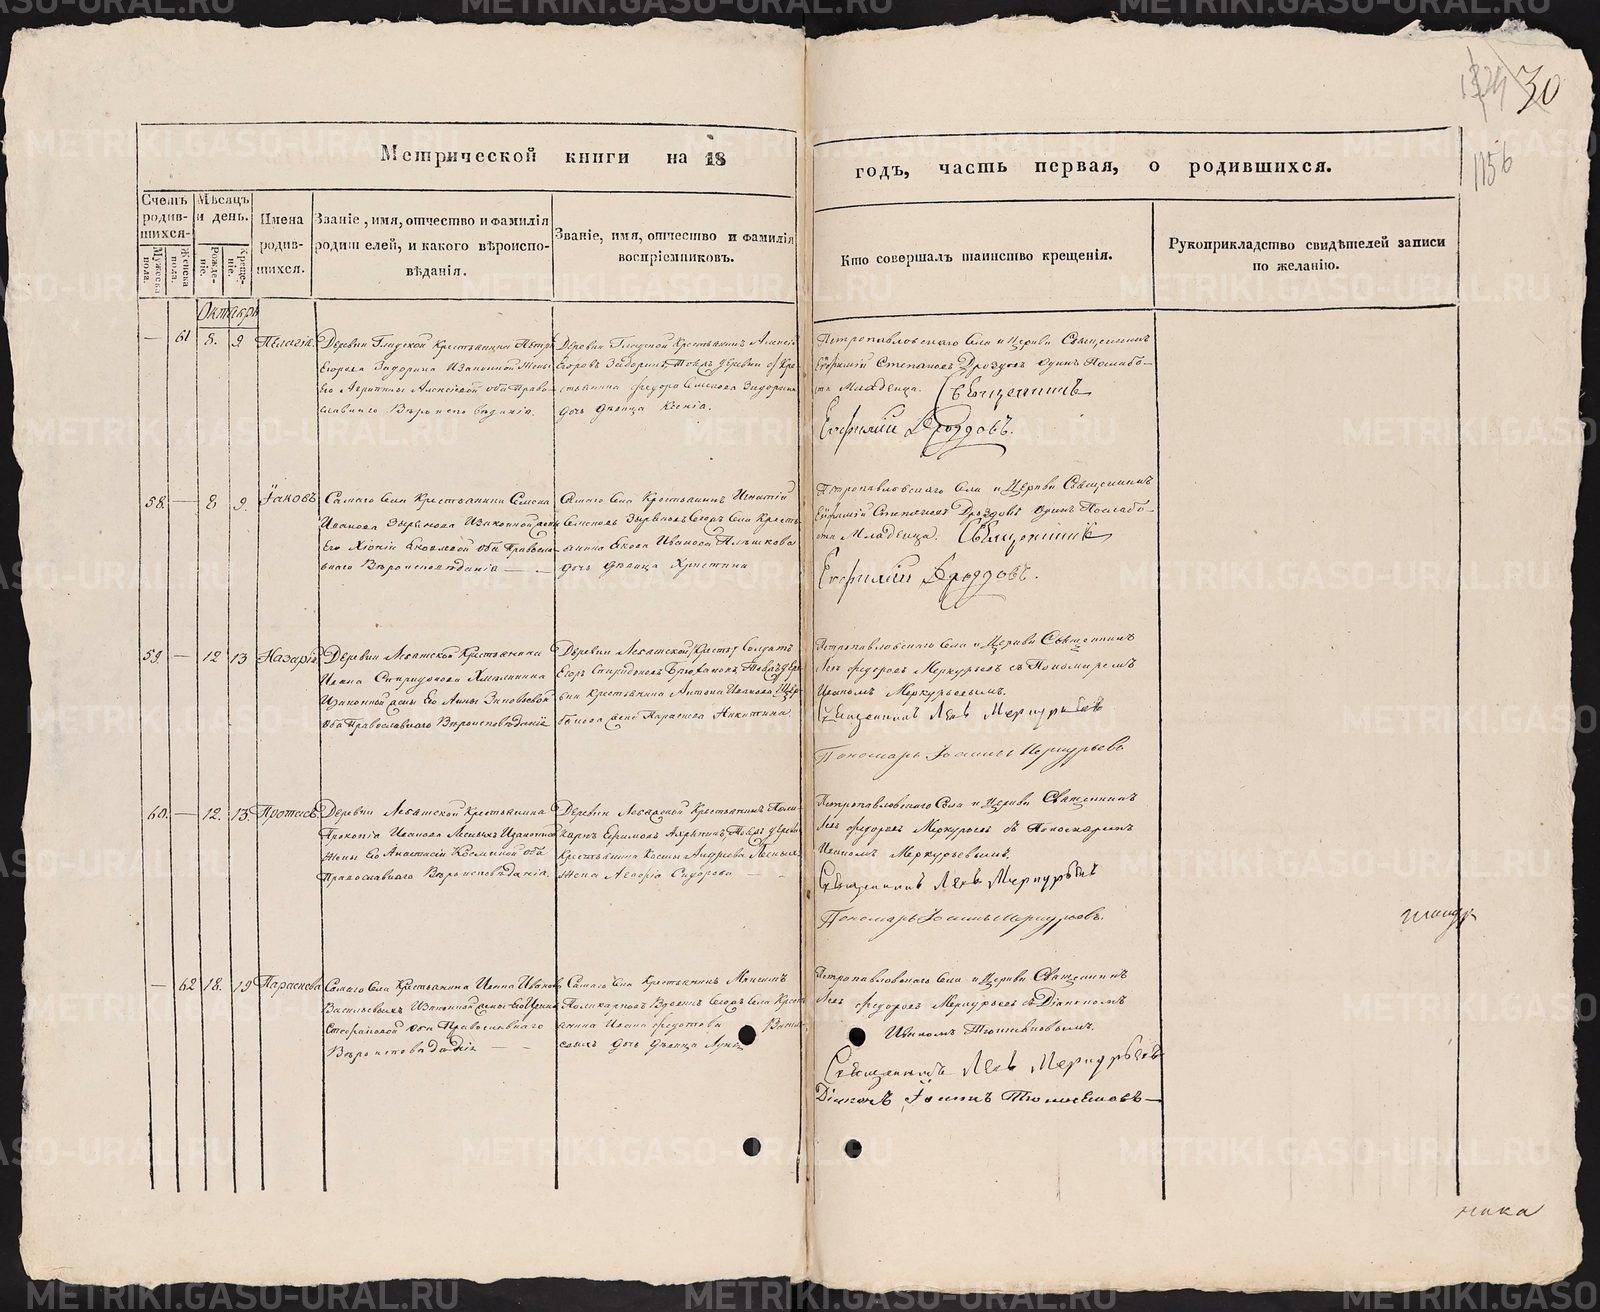 30
1156
Метрической книги на 18
годъ, часть первая, о родившихся.
Счетъ родив-шихся.
Мужеска пола.
Женска пола.
Мѣсяцъ и день.
Рожде-нiе.
Креще-нiе.
Имена родив-шихся.
Званiе, имя, отчество и фамилiя родителей, и какого вѣроиспо-вѣданiя.
Званiе, имя, отчество и фамилiя воспрiемниковъ.
Кто совершалъ таинство крещенiя.
Рукоприкладство свидѣтелей записи по желанiю.
Октябрь
— 61 8. 9 Пелагiя.
Деревни Гладской крестьянина Петра
Егорова Задорина Изаконной жены
Его Агрипины Алексѣевой оба Право-
славнаго Вѣроисповѣданiя.
Деревни Гладской Крестьянинъ Алексѣй
Егоровъ Задоринъ, Тояжъ деревни Кре-
стьянина Федора Задорина
дочь дѣвица Ксенiя.
Петропавловскаго Села и Церкви Священникъ
Евфимiй Степановъ Дроздовъ одинъ Послабо-
сти Младенца. Священникъ
Евфимiй Дроздовъ.
58. — 8 9. Iаковъ
Самаго Села Крестьянина Семена
Иванова Зырянова Изаконной жены
Его Хiонiи Яковлевой оба Правосла-
внаго Вѣроисповѣданiя — —
Самаго Села Крестьянинъ Игнатiй
Семеновъ Зыряновъ Тогожъ Села Кресть-
янина Якова Иванова Плѣшкова
дочь дѣвица Христина
Петропавловскаго Села и Церкви Священникъ
Евфимiй Степановъ Дроздовъ одинъ Послабо-
сти Младенца. Священникъ
Евфимiй Дроздовъ.
59. — 12 13 Назарiй
Деревни Лебатской Крестьянина
Ивана Спиридонова
Изаконной жены Его Анны Зиновьевой
Оба Православнаго Вѣроисповѣданiя
Деревни Лебатской Солдатъ
Егоръ Спиридоновъ Тояжъ дере-
вни крестьянина Антона Иванова
жена Параскева Никитина.
Петропавловскаго Села и Церкви Священникъ
Левъ Федоровъ Меркурьевъ съ Пономаремъ
Иваномъ Меркурьевымъ.
Священникъ Левъ Меркурьевъ
Пономарь Iоаннъ Меркурьевъ
60. — 12. 13. Протасiй
Деревни Лебатской Крестьянина
Прокопiя Иванова Лѣсныхъ Изаконной
Жены Его Анастасiи Козминой оба
Православнаго Вѣроисповѣданiя.
Деревни Лебатской Крестьянинъ Поли-
карпъ Ефимовъ Тояжъ деревни
Крестьянина Космы Андреева Лѣсныхъ
Жена Сидорова — —
Петропавловскаго Села и Церкви Священникъ
Левъ Федоровъ Меркурьевъ съ Пономаремъ
Иваномъ Меркурьевымъ.
Священникъ Левъ Меркурьевъ
Пономарь Iоаннъ Меркурьевъ.
— 62 18. 19 Параскева
Самаго Села Крестьянина Ивана Иванова
Васильевыхъ Изаконной жены Его
Стефановой оба Православнаго
Вѣроисповѣданiя — —
Самаго Села Крестьянинъ Максимъ
Поликарповъ Тогожъ Села Кресть-
янина Ивана Федотова Василь-
евыхъ дочь дѣвица
Петропавловскаго Села и Церкви Священникъ
Левъ Федоровъ Меркурьевъ съ Дiакономъ
Иваномъ
Священникъ Левъ Меркурьевъ
Дiаконъ Iоаннъ
ника
METRIKI.GASO-URAL.RU